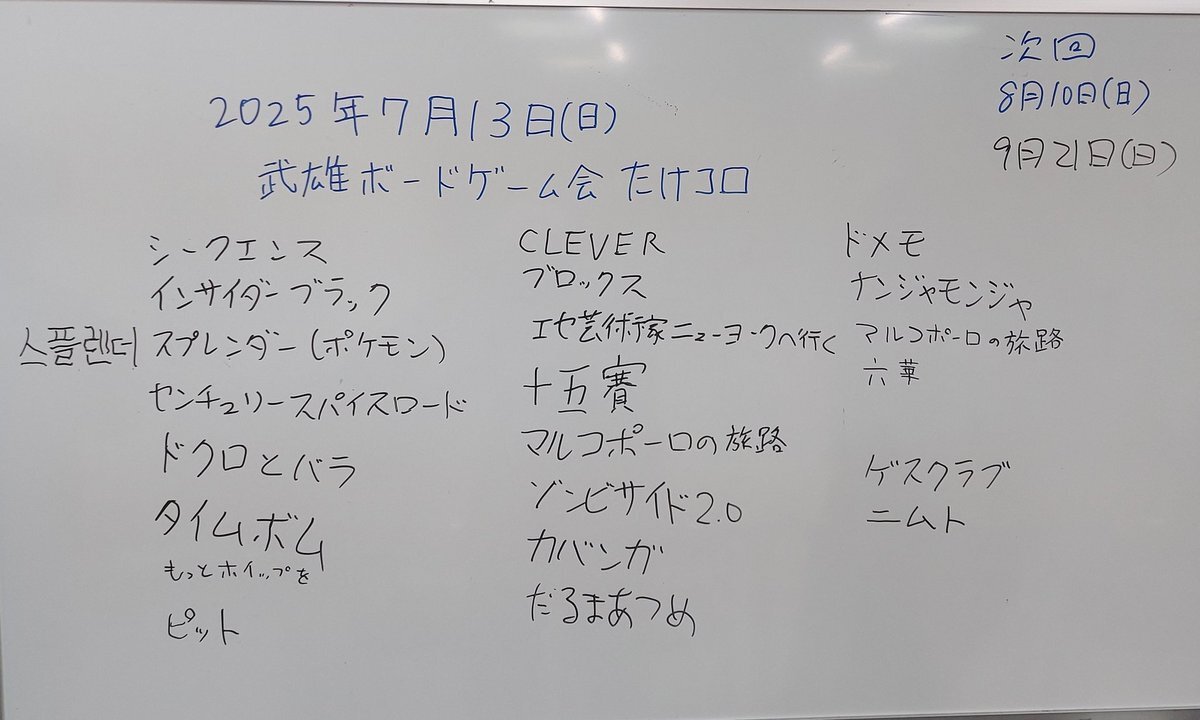 次回
8月10日(日)
9月21日(日)
2025年7月13日(日)
武雄ボードゲーム会 たけコロ
シークエンス
インサイダーブラック
스플렌더 スプレンダー(ポケモン)
センチュリースパイスロード
ドクロとバラ
タイムボム
もっとホイップを
ピット
CLEVER
ブロックス
エセ芸術家ニューヨークへ行く
十五賽
マルコポーロの旅路
ゾンビサイド2.0
カバンガ
だるまあつめ
ドメモ
ナンジャモンジャ
マルコポーロの旅路
六華
ゲスクラブ
ニムト